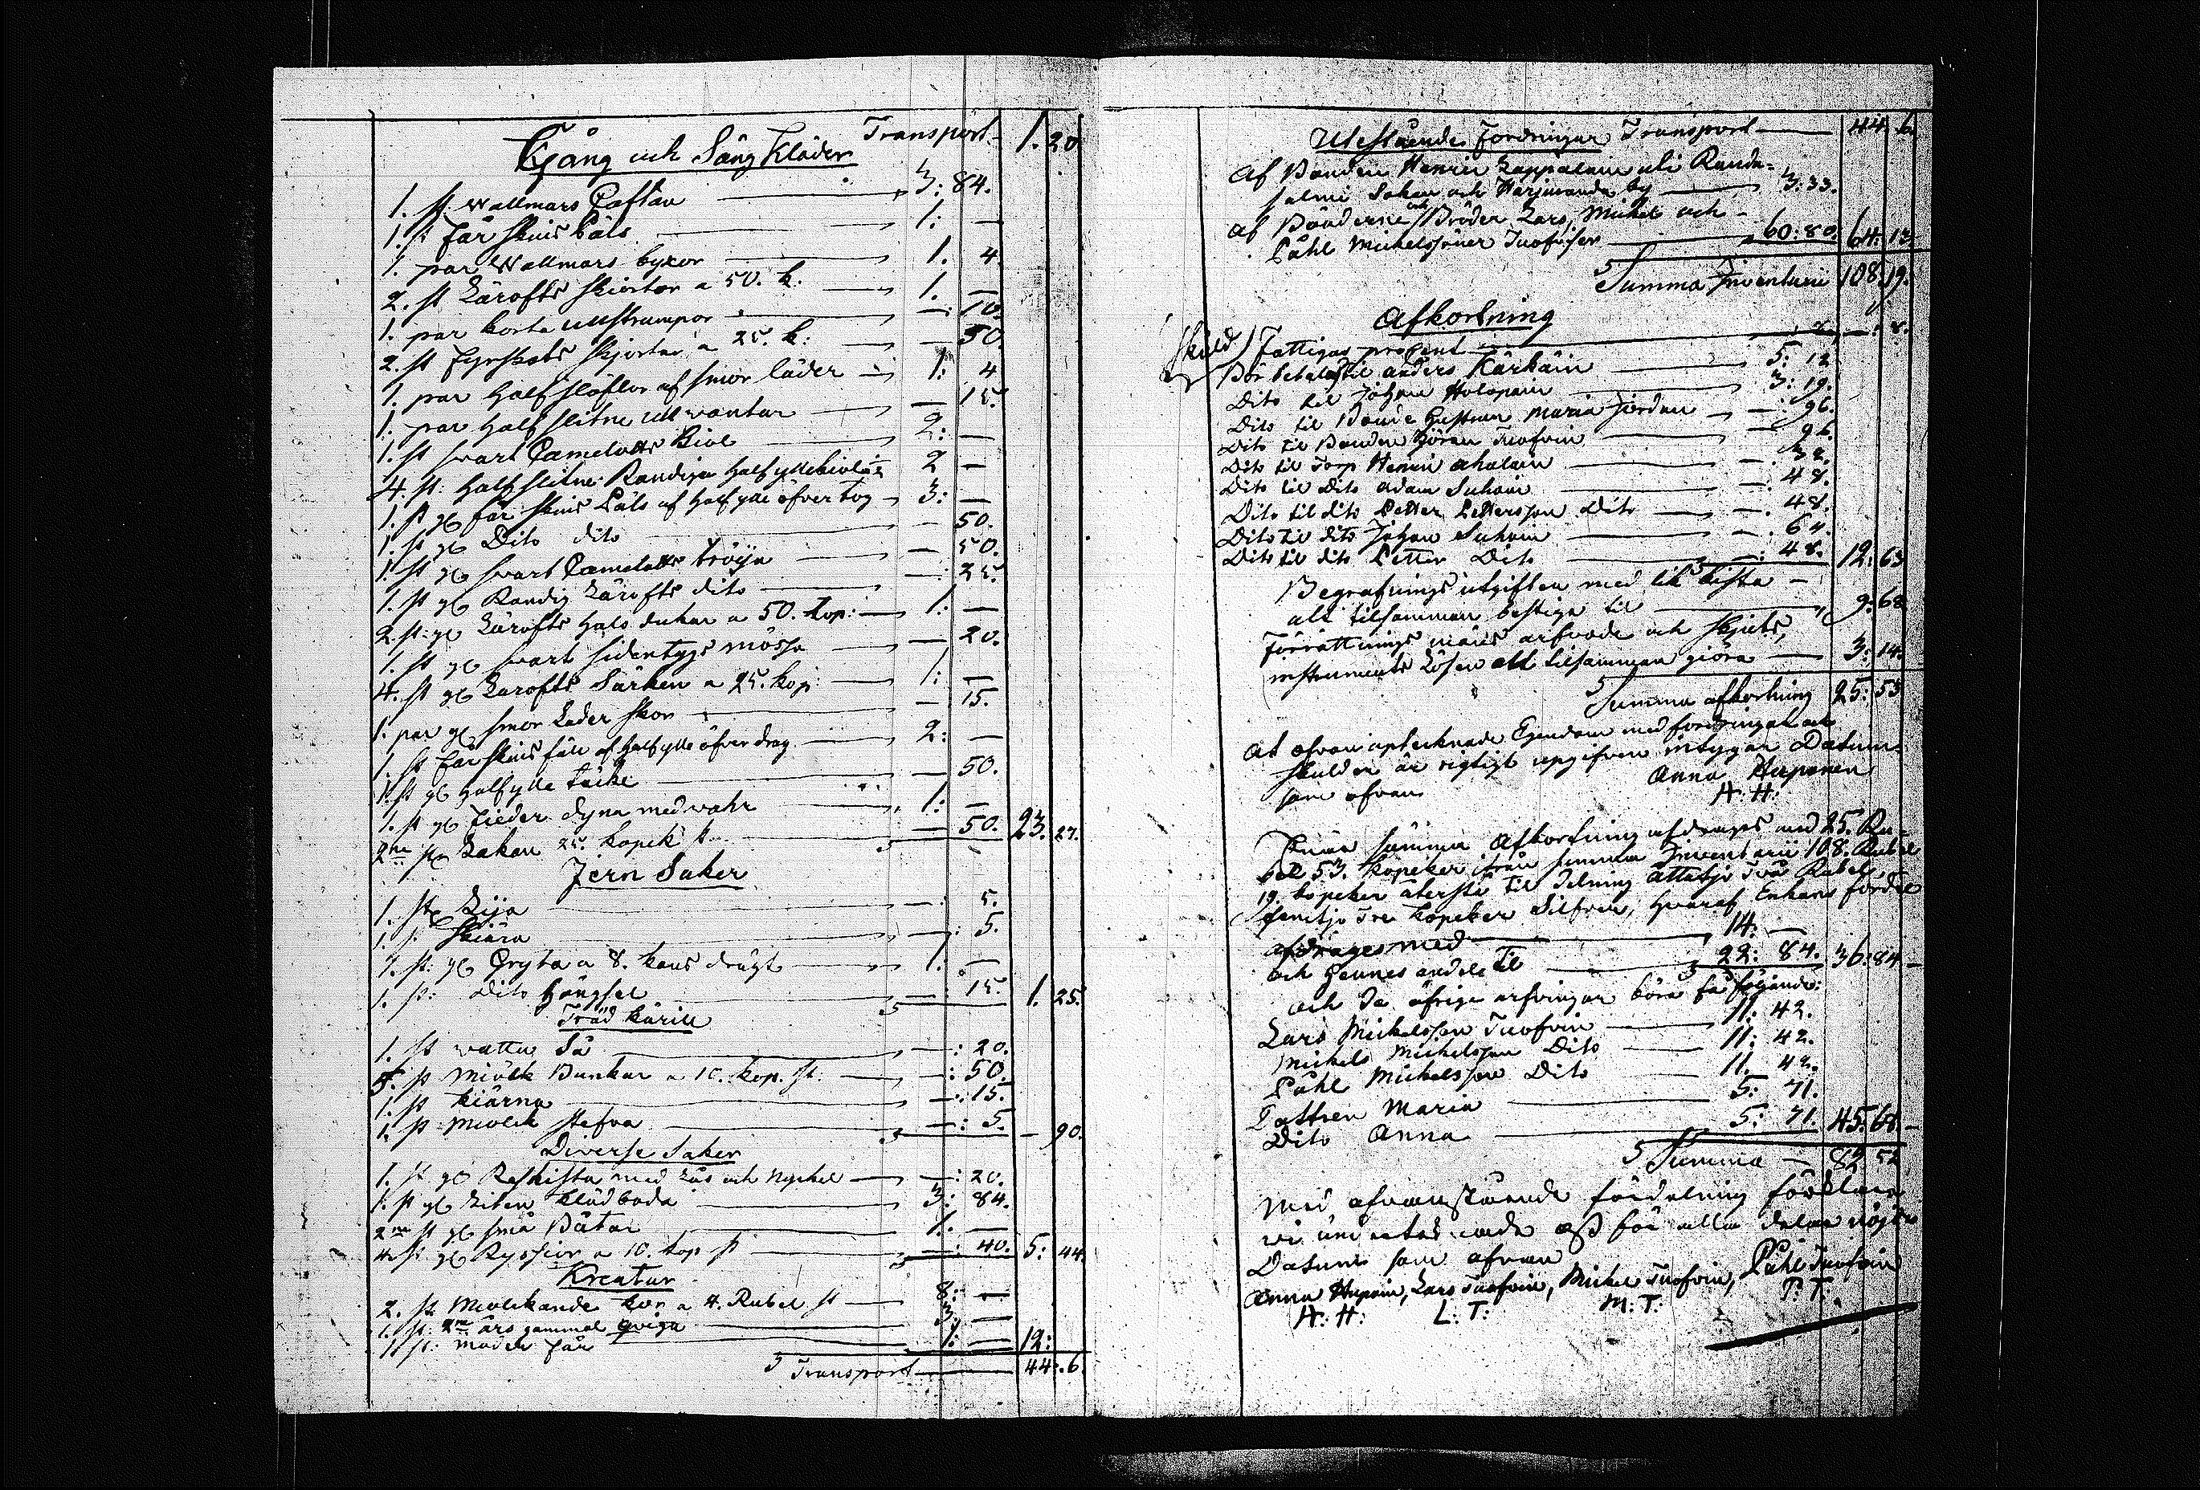 Transport — 1. 20
Gång och Säng Kläder
1. st. Wallmars Caftan — 3: 84.
1. st får skins Päls — 1: —
1. par Wallmars byxor — 1. 4.
2. st Lärofts skiortor a 50. k. — 1. —
1. par korta ullstrumpor — 10.
2. st Fyrskafts skjortor a 25. k: — 50.
1. par Half slöflor af smor läder — 1: 4
1. par Half slitne ull vantar — 15.
1. st svart Camelotts Kiol — 2: —
4. st: Half slitne Randiga Halfylle 2 —
1. st gl får skins Päls af Halfylle öfver tog — 3: —
1. st gl Dito dito — 50.
1. st gl svart Camelotts tröija — 50.
1. st gl Randig Lärofts dito — 25.
2. st: gl Lärofts Hals dukar a 50. kop: — 1: —
1. st gl svart sidentygs mössa — 20.
4. st gl Lärofts Särken a 25. kop: — 1: —
1. par gl smor Läder skor — 15.
1. st får skins fäll af Halfylle öfver drag — 2: —
1. st gl Halfylle täcke — 50.
1. st gl Fieder dyna med wahr — 1: —
2ne st Lakan 25. kopek st — 50. 23. 27.
Jern Saker
1. st Lija — : 5.
1. st. Skiära — : 5.
1. st: gl Gryta a 8. kans drägt — 1. —
1. st: Dito Hängsel — : 15. 1. 25.
Träd kärill
1. st vattu Så — : 20.
5. st Miölk Bunkar a 10. kop. st. — : 50.
1. st kiärna — : 15.
1. st: Miölk stefva — : 5. — 90.
Diverse Saker
1. st gl Reskista med Lås och Nyckel — : 20.
1. st gl Liten Klädboda — 3: 84.
2ne st gl små Båtar — 1. —
4. st: gl Ryssior a 10. kop st — : 40. 5: 44.
Kreatur
2. st Miölkande kor a 4. Rubel st — 8: —
1. st: 2ne års gammal Qviga — 3. —
1. st: moder får — 1: — 12:
Transport — 44. 6.
Utestående Fordringar Transport — 44. 6.
Af Bonden Henric Kappalain uti Randa-
salmi Sokn och Harjuranda by — 3: 33.
af Bönderne och Bröder Lars, Michel och
Påhl Michelssöner Tuofvin — 60: 80. 64: 13
Summa Inventarii 108. 19.
Afkortning
Skuld Fattigas procent — : 8.
Bör betalas til Anders Kärkäin — 5: 12
Dito til Johan Holopain — 3: 19.
Dito til Bonde Hustrun Maria Jordan — : 96.
Dito til Bonden Göran Tuofvin — 96.
Dito til Torp Henric Ahalain — . 32.
Dito til Dito Adam Suhoin — : 48.
Dito til dito Petter Pettersson Dito — . 48.
Dito til dito Johan Suhoin — . 64.
Dito til dito Petter Dito — : 48. 12: 63
Begrafnings utgiften med lik kista
alt tilsamman bestiga til — 9: 68
Förrättnings mäns arfvode och skifts,
instruments Lösen alt tilsamman giöra — 3: 14.
Summa afkortning 25: 53
At ofvan antecknade Egendom med fordringar och
skulder är rigtigt upgifven intygar Datum
som ofvan Anna Huponen
A: H:
När summa Afkortning afdrages med 25. Ru-
bel 53. kopeker ifrån summa Inventarii 108. Rubel
19. kopeker återstå til delning åttatijo Två Rubel,
femtijo Tre kopeker Silfver, Hvaraf Enkans fördel
afdrages med — 14: —
och Hennes andel til — 22: 84. 36: 84
och de öfrige arfvingar böra få följande:
Lars Michelsson Tuofvin — 11: 42.
Michel Michelsson Dito — 11: 42.
Påhl Michelsson Dito — 11. 42.
Dottren Maria — 5: 71.
Dito Anna — 5: 71. 45: 68
Summa — 82 52
Med ofvanstående fördelning förklara
vi undertecknade oss för alla delar nöjde
Datum som ofvan
Anna Hupoin, Lars Tuofvin, Michel Tuofvin, Påhl Tuofvin
A: H: L: T: M: T: P: T: